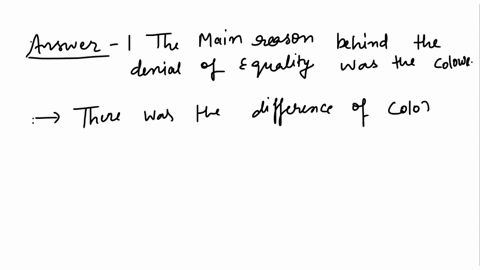 Answer - 1 The Main reason behind the
denial of Equality was the colour.
→ There was the difference of Color